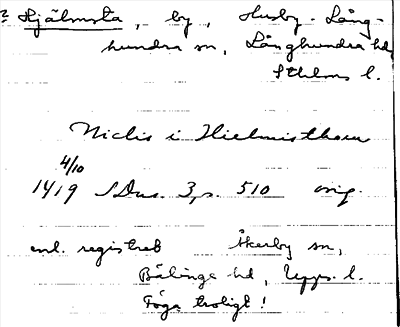 ? Hjälmsta, by, Husby-Lång-
hundra sn, Långhundra hd
Sthlms l.
Niclis i Hielmisthom
4/10
1419 SDns. 3, s. 510 orig.
enl. registret Åkerby sn,
Bälinge hd, Upps. l.
Föga troligt!